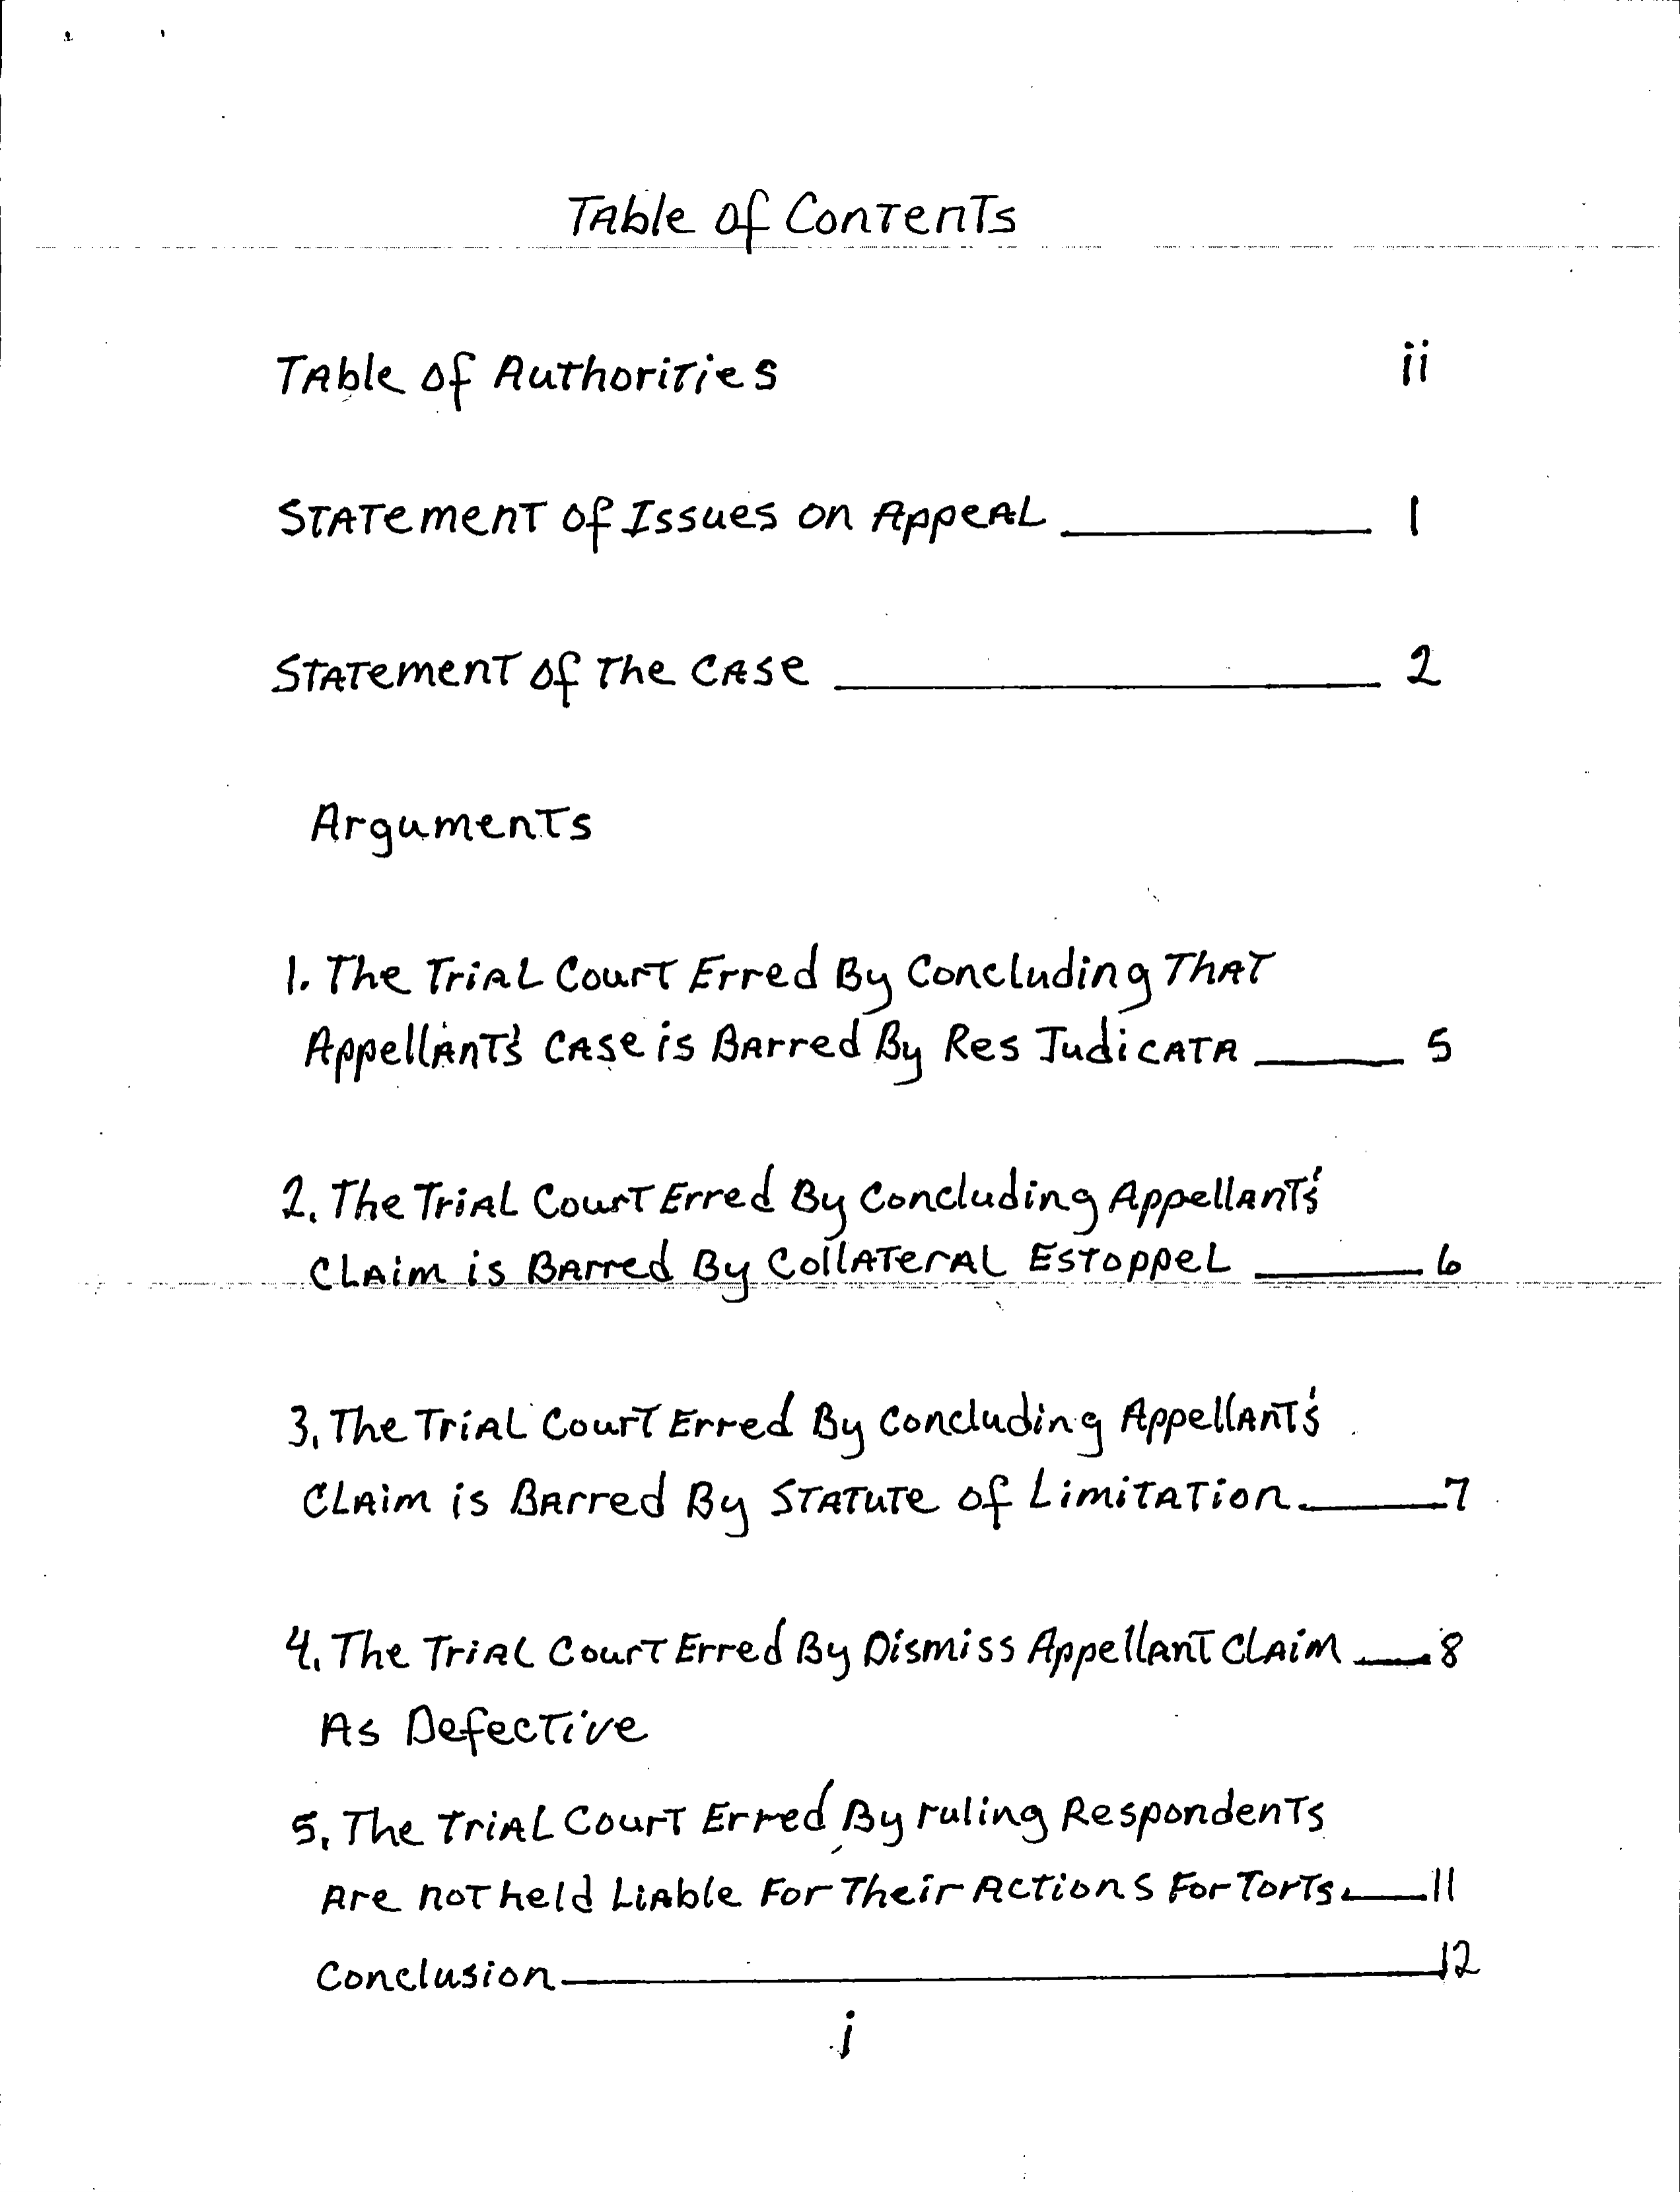 Table of Contents
Table of Authorities ii
Statement of Issues on Appeal 1
Statement of The Case 2
Arguments
1. The Trial Court Erred By Concluding That
Appellant's Case is Barred By Res Judicata 5
2. The Trial Court Erred By Concluding Appellant's
Claim is Barred By Collateral Estoppel 6
3. The Trial Court Erred By Concluding Appellant's
Claim is Barred By Statute of Limitation 7
4. The Trial Court Erred By Dismiss Appellant Claim 8
As Defective
5. The Trial Court Erred By ruling Respondents
Are not held Liable For Their Actions For Torts. 11
Conclusion 12
i